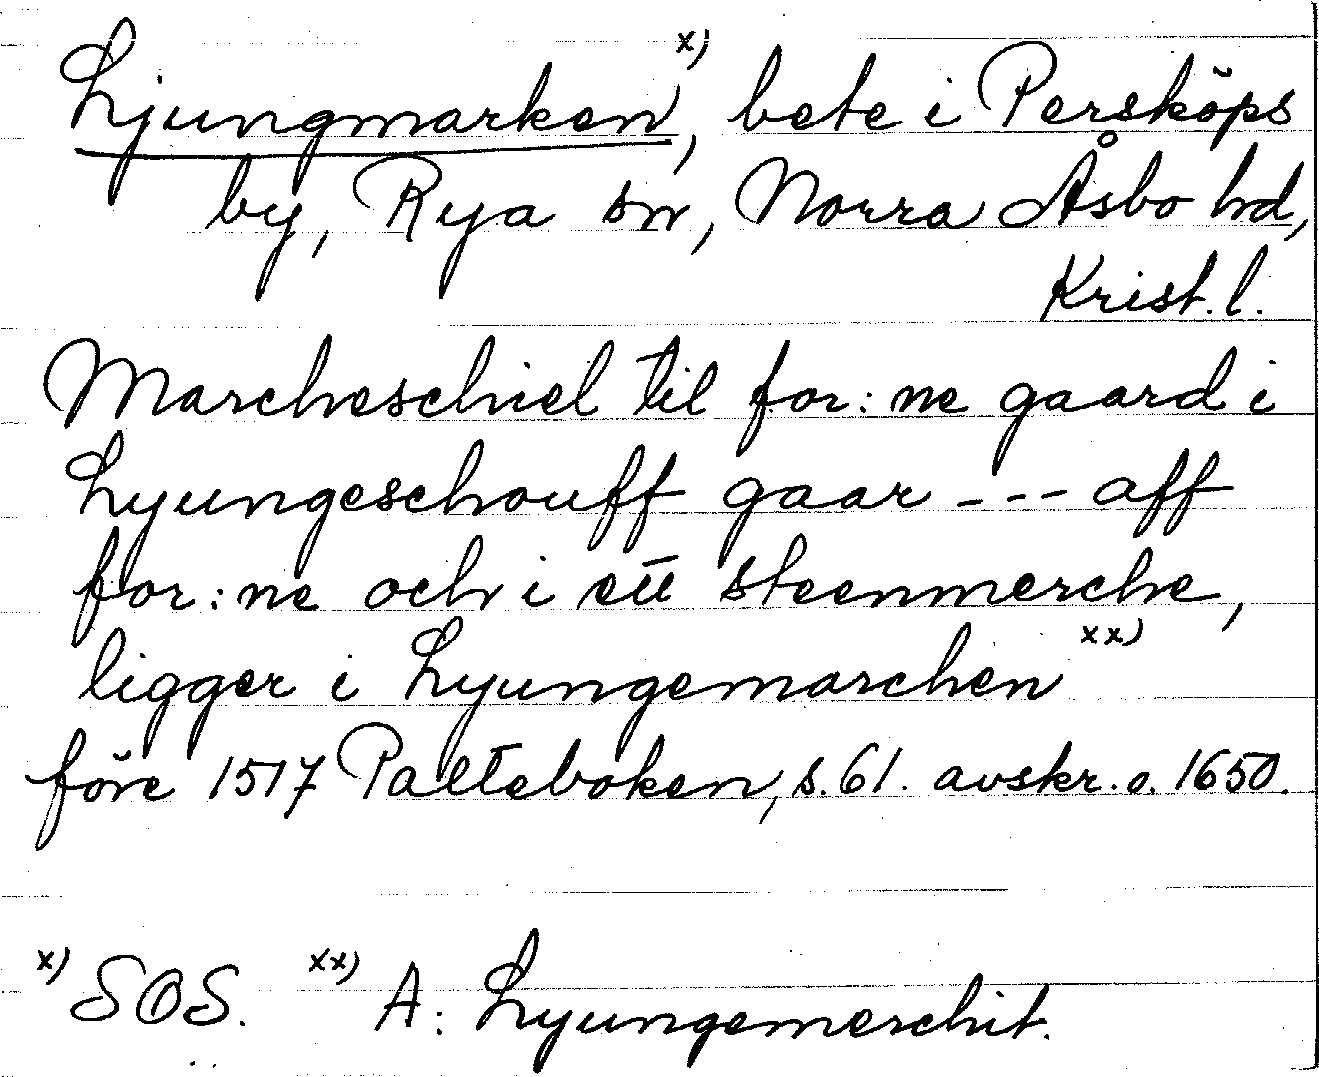 Ljungmarken x), bete i Persköps
by, Rya sn, Norra Åsbo hd,
Krist. l.
Marcheschiel til for: ne gaard i
Lyungeschouff gaar --- aff
for: ne och i ett steenmerche,
ligger i Lyungemarchen xx)
före 1517 Palteboken, s. 61. avskr. o. 1650.
x) SOS. xx) A: Lyungemerchit.